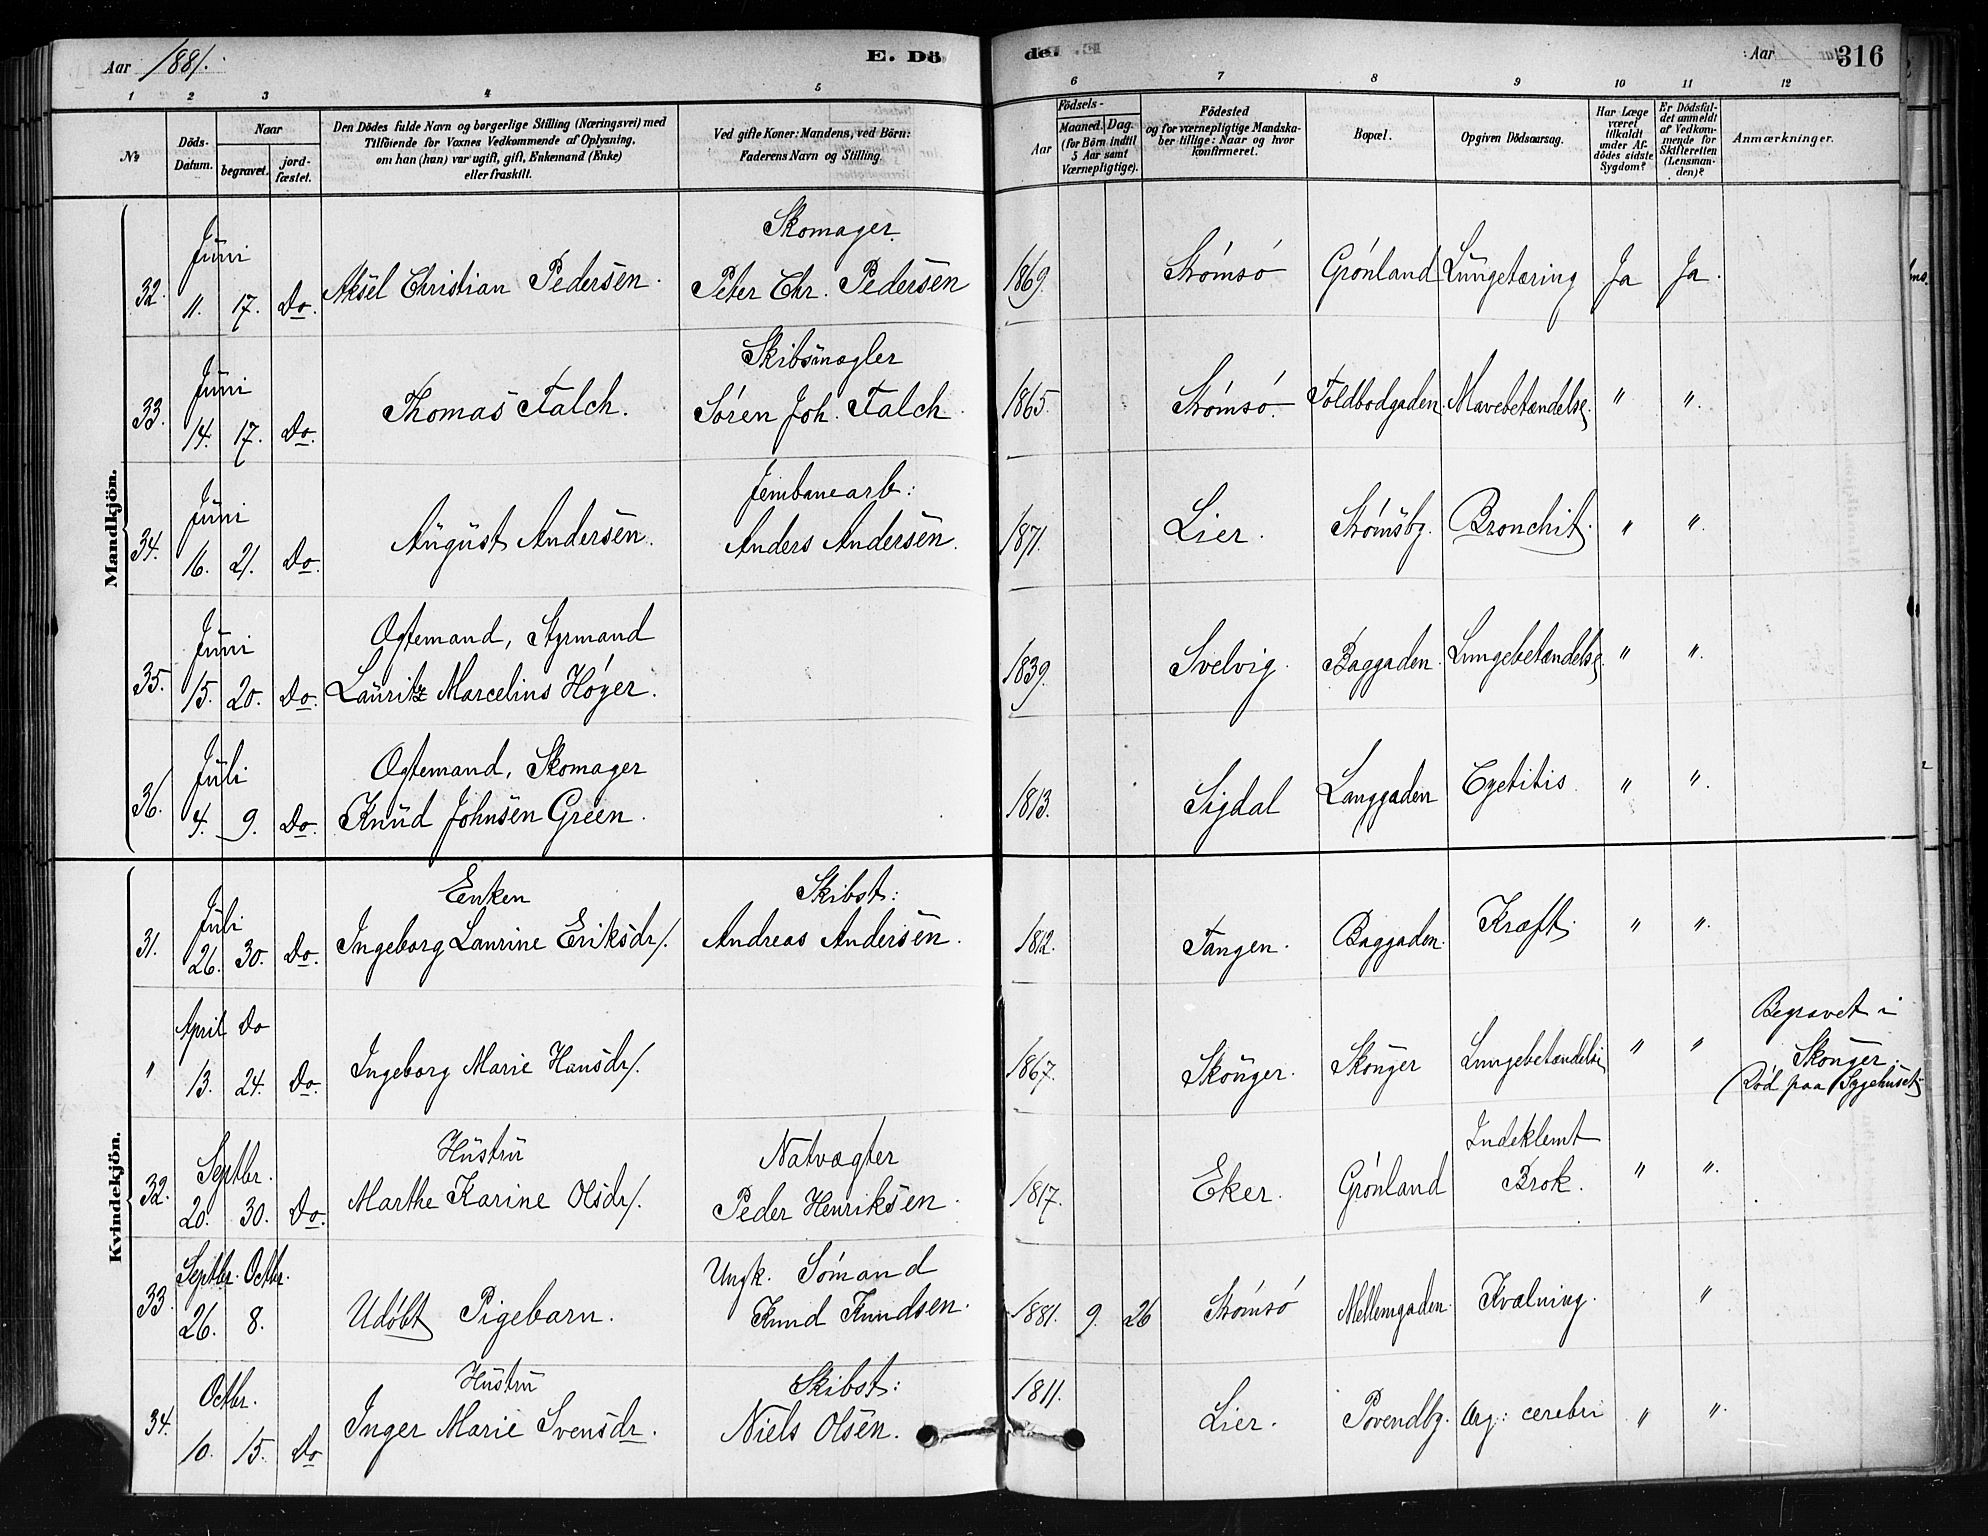 Aar 1881. E. Dö
de. Aar 316
1 2 3 4 5 6 7 8 9 10 11 12
No
Döds-
Datum.
Naar
begravet.
jord-
fæstet.
Den Dödes fulde Navn og borgerlige Stilling (Næringsvei) med
Tilföiende for Voxnes Vedkommende af Oplysning,
om han (han) var ugift, gift, Enkemand (Enke)
eller fraskilt.
Ved gifte Koner: Mandens, ved Börn:
Faderens Navn og Stilling.
Födsels-
Aar
Maaned. Dag.
(for Börn indtil
5 Aar samt
Værnepligtige).
Födested
og for værnepligtige Mandska-
ber tillige: Naar og hvor
konfirmeret.
Bopæl.
Opgiven Dödsaarsag.
Har Læge
været
tilkaldt
under Af-
dödes sidste
Sygdom?
Er Dödsfal-
det anmeldt
af Vedkom-
mende for
Skifteretten
(Lensman-
den)?
Anmærkninger.
Mandkjön.
Juni Skomager
32. 11. 17. Do. Aksel Christian Pedersen. Peter Chr. Pedersen 1869. Strömsö Grönland Lungetæring Ja Ja.
Juni Skibsmægler
33. 14. 17. Do. Thomas Falch. Sören Joh. Falch 1865. Strömsö. Toldbodgaden. Mavebetændelse. " ".
Juni Jernbanearb:
34. 16. 21. Do. August Andersen. Anders Andersen. 1871. Lier. Strömsbg. Bronchit. " ".
Juni Ogtemand, Styrmand
35. 15. 20. Do. Lauritz Marcelius Höyer. 1839. Svelvig. Baggaden. Lungebetændelse. " ".
Juli Ogtemand, Skomager
36. 4. 9. Do. Knud Johnsen Green. 1813. Sigdal Langgaden Cystitis. " ".
Kvindekjön.
Juli Enken Skibst:
31. 26. 30. Do. Ingeborg Laurine Eriksdr/. Andreas Andersen. 1812. Tangen. Baggaden. Kræft. " ".
April Do Begravet i
" 13. 24. Do. Ingeborg Marie Hansdr/. 1867. Skouger. Skouger Lungebetændelse " " Skouger.
(Död paa Sygehuset.
Septbr. Hustru Natvægter Indeklemt
32. 20. 30. Do. Marthe Karine Olsdr/. Peder Henriksen. 1817. Eker. Grönland Brok. " ".
Septbr. Octbr. Ungk. Sömand
33. 26. 8. Udöbt Pigebarn. Knud Knudsen. 1881. 9. 26 Strömsö Mellemgaden. Kvælning. "
Octbr. Hustru Skibst:
34. 10. 15. Do Inger Marie Svensdr. Niels Olsen. 1811. Lier. Povendbg. cerebri " ".